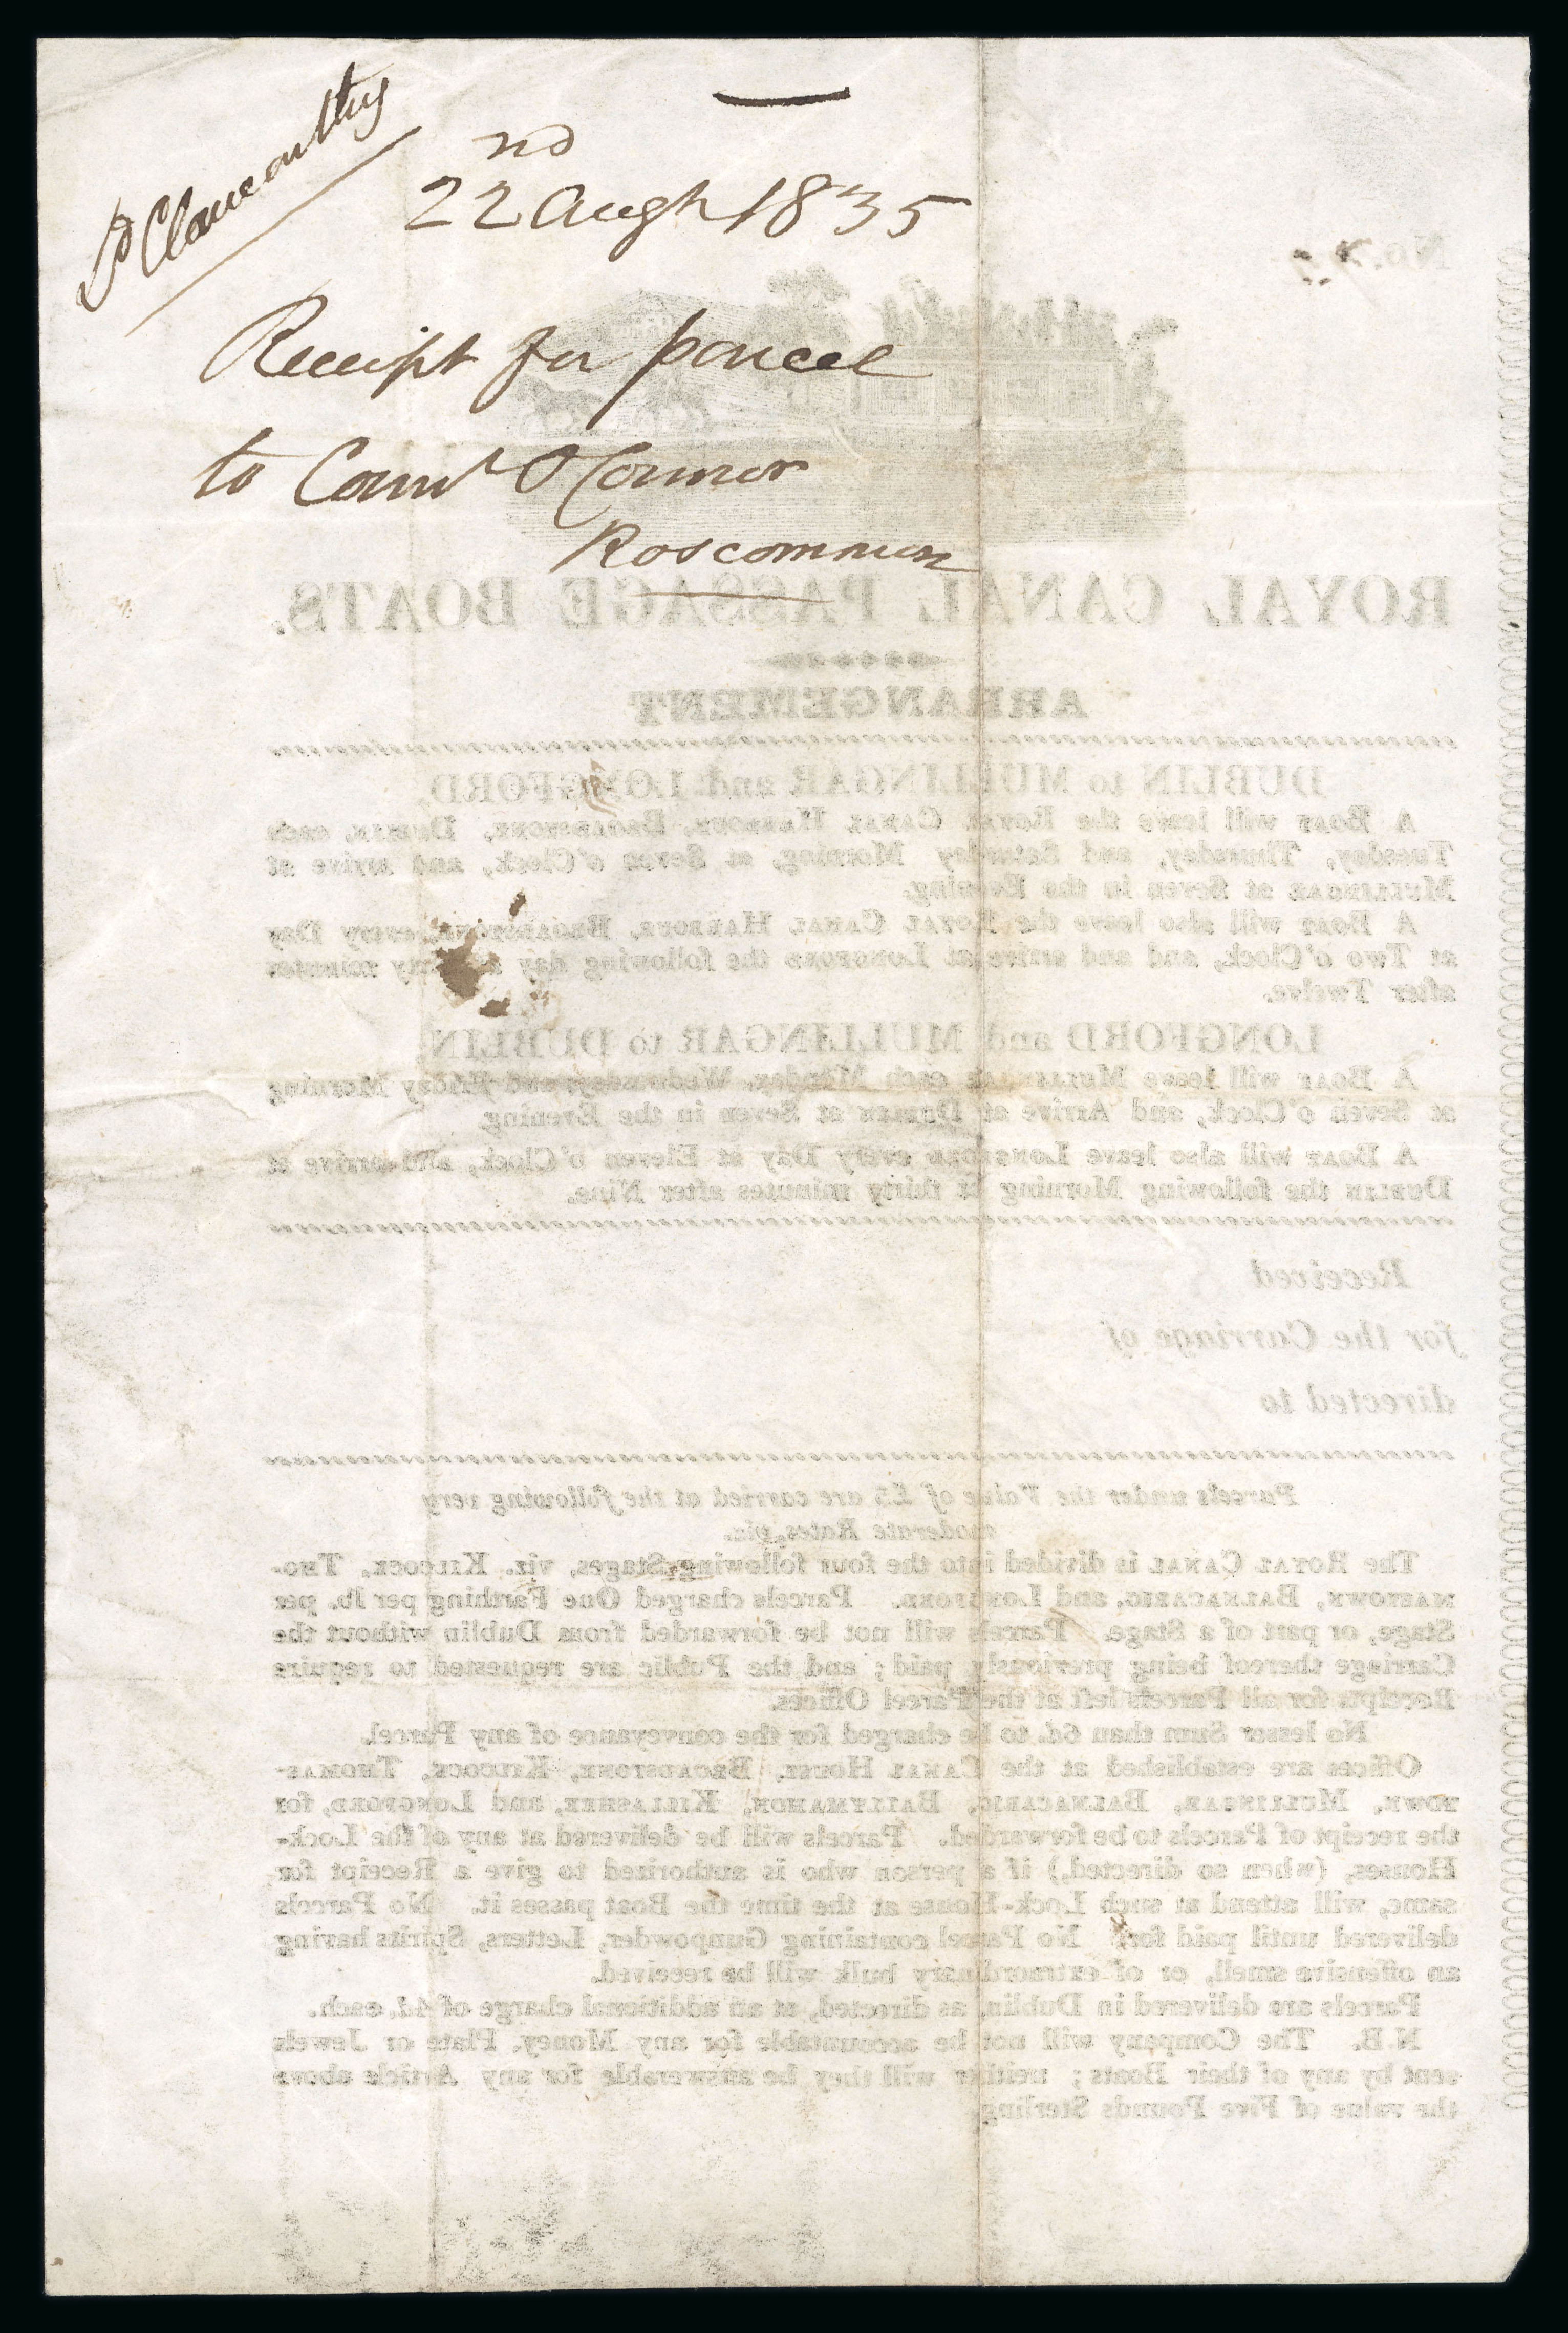 Ld Clancarthy
nd
22 Augt 1835
Receipt for parcel
to Connr O Connor
Roscommon
No.
ROYAL CANAL PASSAGE BOATS.
ARRANGEMENT
DUBLIN to MULLINGAR and LONGFORD.
A BOAT will leave the ROYAL CANAL HARBOUR, BROADSTONE, DUBLIN, each
Tuesday, Thursday, and Saturday Morning, at Seven o'Clock, and arrive at
MULLINGAR at Seven in the Evening.
A BOAT will also leave the ROYAL CANAL HARBOUR, BROADSTONE, every Day
at Two o'Clock, and and arrive at LONGFORD the following day at minutes
after Twelve.
LONGFORD and MULLINGAR to DUBLIN.
A BOAT will leave MULLINGAR each Monday, Wednesday, and Friday Morning
at Seven o'Clock, and Arrive at DUBLIN at Seven in the Evening.
A BOAT will also leave LONGFORD every Day at Eleven o'Clock, and arrive at
DUBLIN the following Morning at thirty minutes after Nine.
Received
for the Carriage of
directed to
Parcels under the Value of £5 are carried at the following very
moderate Rates, viz.
The ROYAL CANAL is divided into the four following Stages, viz. KILCOCK, THO-
MASTOWN, BALNACARIG, and LONGFORD. Parcels charged One Farthing per lb. per
Stage, or part of a Stage. Parcels will not be forwarded from Dublin without the
Carriage thereof being previously paid; and the Public are requested to require
Receipts for all Parcels left at the Parcel Offices.
No lesser Sum than 6d. to be charged for the conveyance of any Parcel.
Offices are established at the CANAL HOUSE, BROADSTONE, KILCOCK, THOMAS-
TOWN, MULLINGAR, BALNACARIG, BALLYMAHON, KILLASHEE, and LONGFORD, for
the receipt of Parcels to be forwarded. Parcels will be delivered at any of the Lock-
Houses, (when so directed,) if a person who is authorized to give a Receipt for
same, will attend at such Lock-House at the time the Boat passes it. No Parcels
delivered until paid for. No Parcel containing Gunpowder, Letters, Spirits having
an offensive smell, or of extraordinary bulk will be received.
Parcels are delivered in Dublin, as directed, at an additional charge of 4d. each.
N.B. The Company will not be accountable for any Money, Plate or Jewels
sent by any of their Boats; neither will they be answerable for any Article above
the value of Five Pounds Sterling.